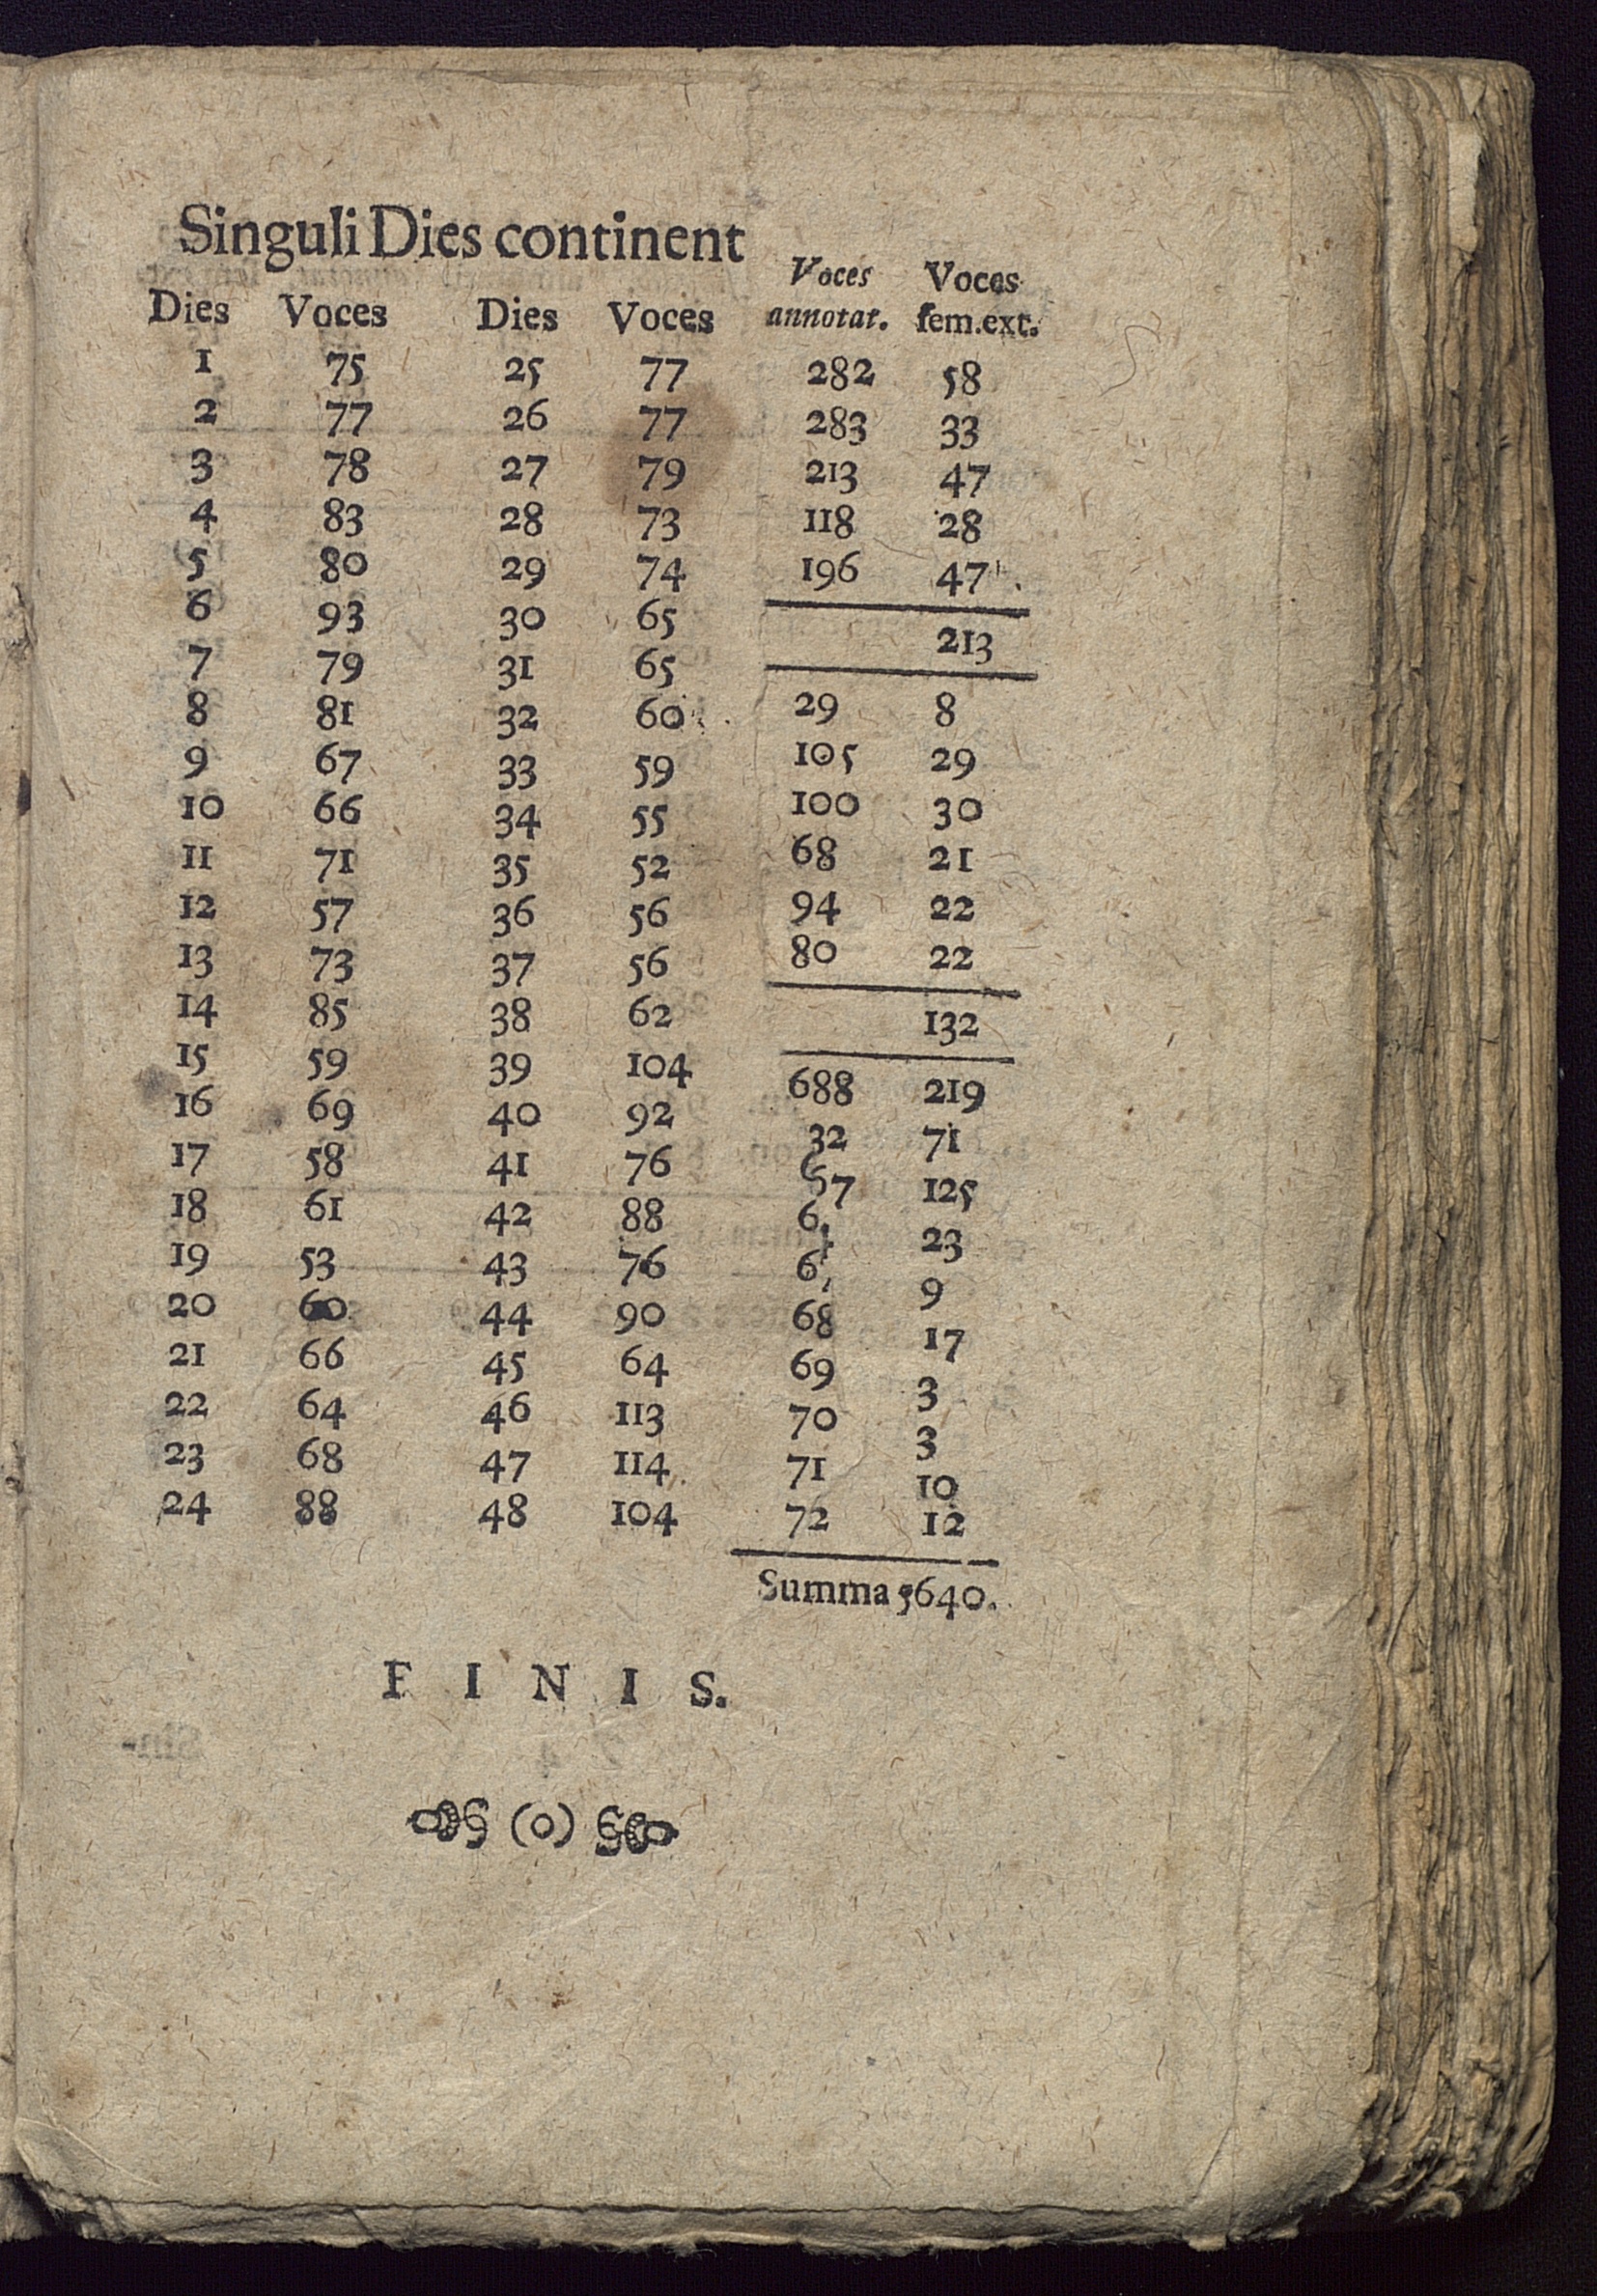 Singuli Dies continent
Dies Voces Dies Voces Voces annotat. Voces sem.ext.
1 75 25 77 282 58
2 77 26 77 283 33
3 78 27 79 213 47
4 83 28 73 118 28
5 80 29 74 196 47
6 93 30 65 213
7 79 31 65
8 81 32 60 29 8
9 67 33 59 105 29
10 66 34 55 100 30
11 71 35 52 68 21
12 57 36 56 94 22
13 73 37 56 80 22
14 85 38 62 132
15 59 39 104 688 219
16 69 40 92 32 71
17 58 41 76 125
18 61 42 88 23
19 53 43 76 9
20 60 44 90 68 17
21 66 45 64 69 3
22 64 46 113 70 3
23 68 47 114 71 10
24 88 48 104 72 12
Summa 5640.
F I N I S.
(0)